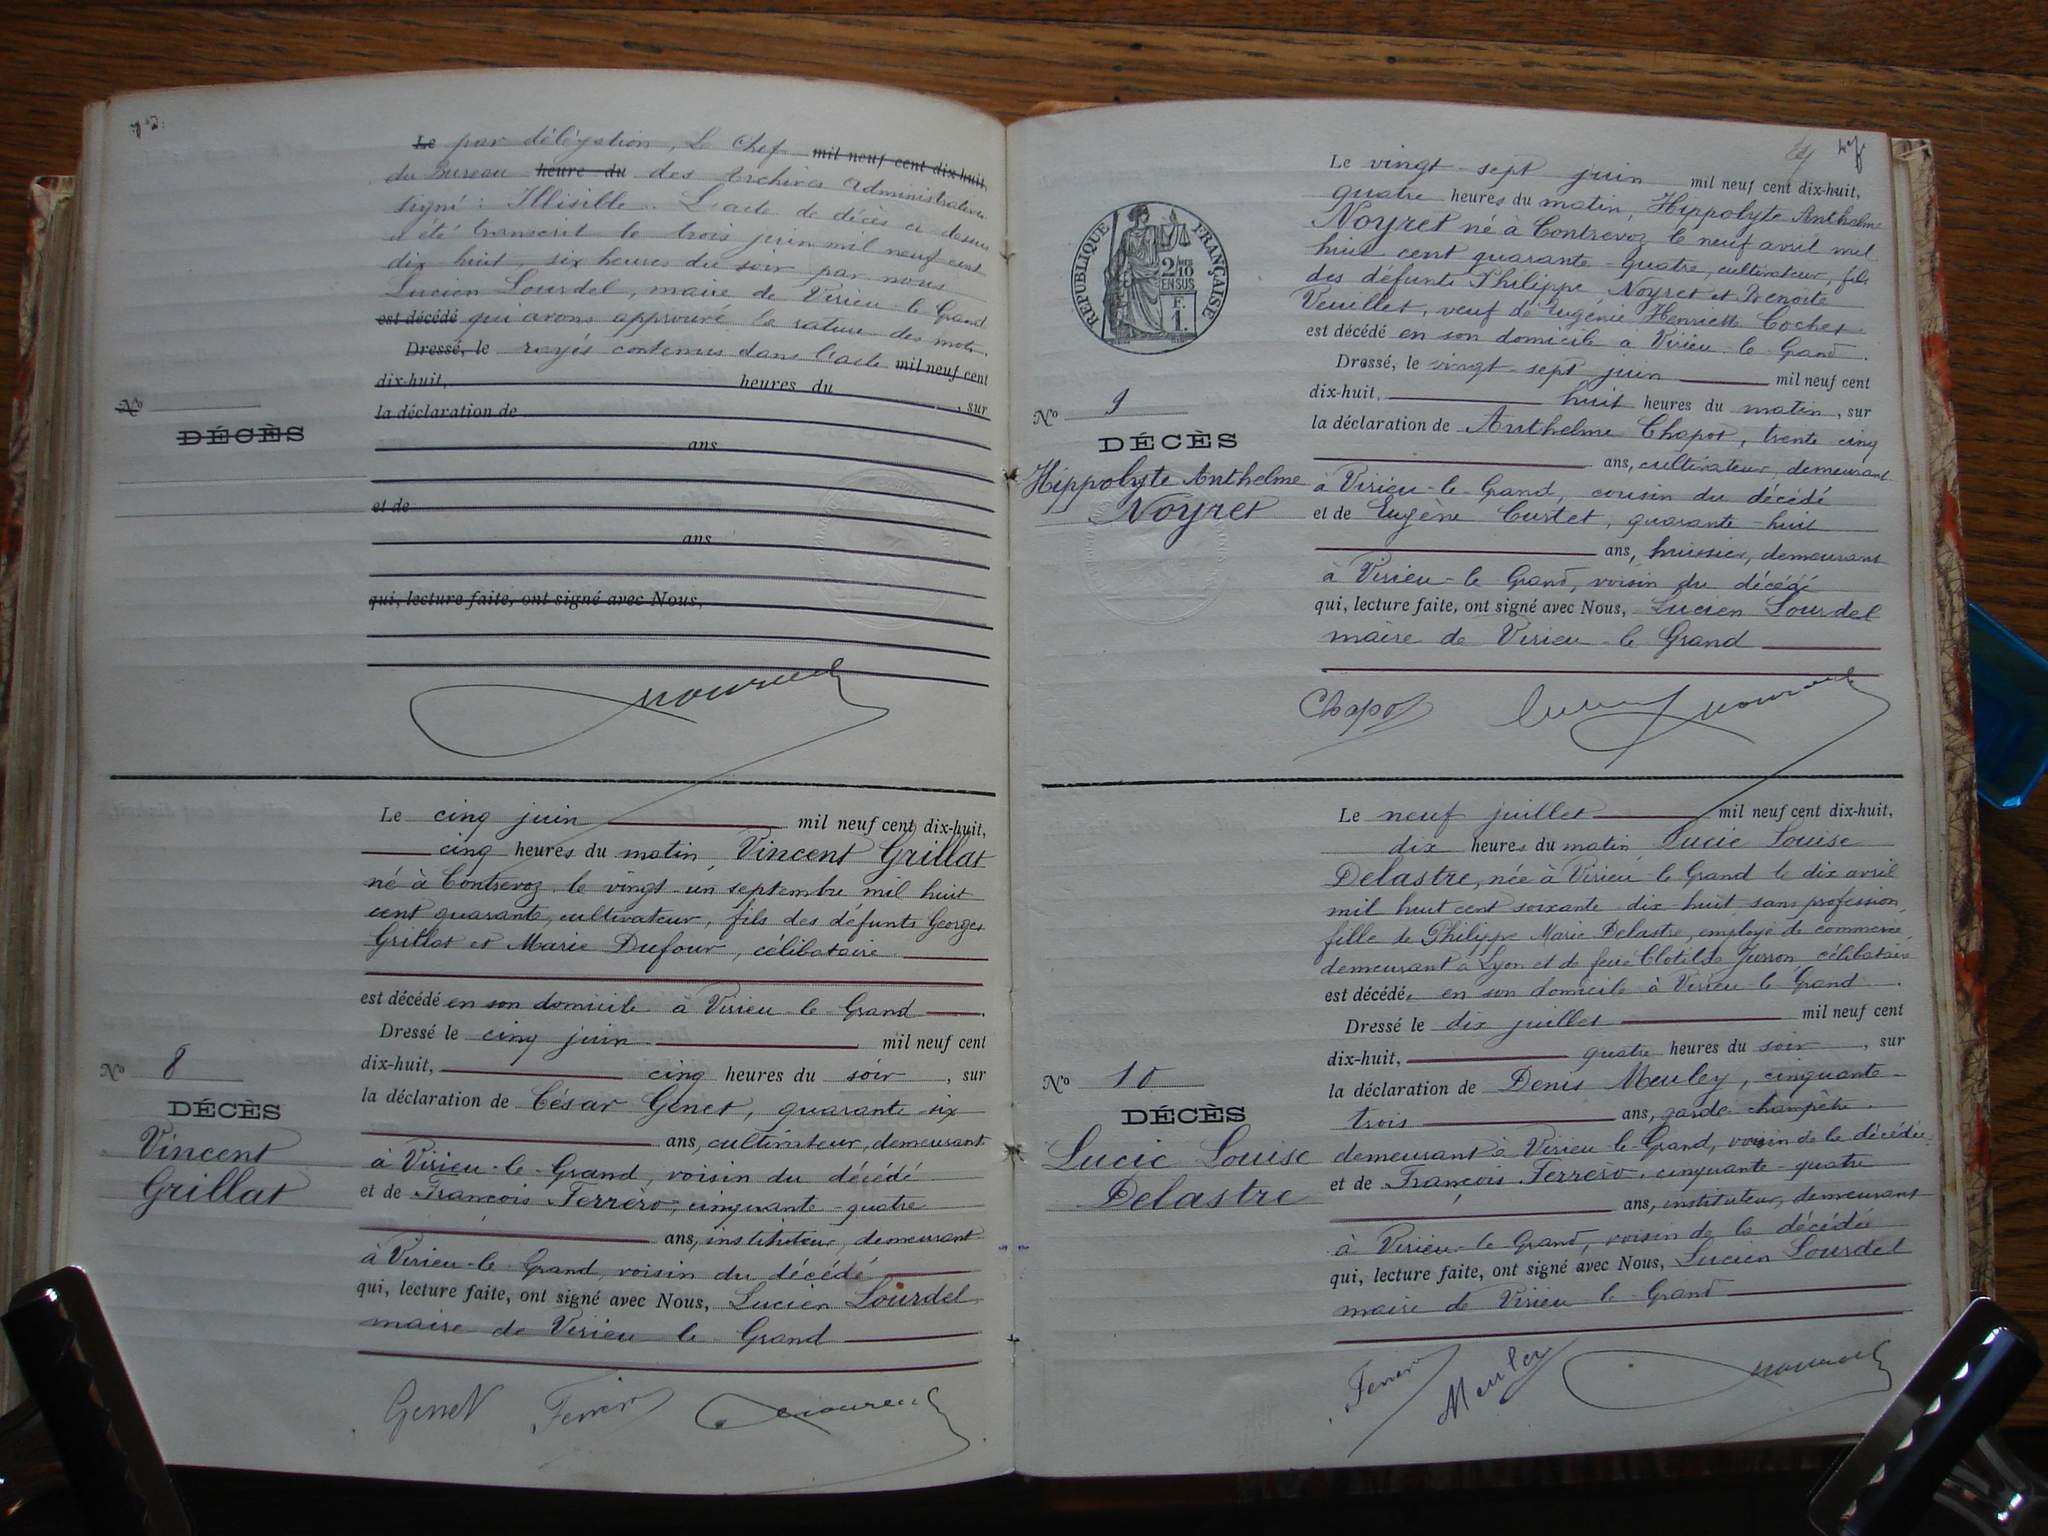 Le par délégation, Le Chef mil neuf cent dix-huit,
du Bureau heure du des Archives Administratives
signé: Illisible. L'acte de décès ci dessus
a été transcrit le trois juin mil neuf cent
dix huit, six heures du soir par nous
Lucien Lourdel, maire de Virieu-le-Grand
est décédé qui avons approuvé la rature des mots
Dressé, le rayés contenus dans l'acte mil neuf cent
dix-huit, heures du , sur
la déclaration de
ans
et de
ans
qui, lecture faite, ont signé avec Nous,
No
DÉCÈS
Le cinq juin mil neuf cent dix-huit,
cinq heures du matin, Vincent Grillat
né à Contrevoz le vingt-un septembre mil huit
cent quarante, cultivateur, fils des défunts Georges
Grillat et Marie Dufour, célibataire
est décédé en son domicile à Virieu-le-Grand
Dressé le cinq juin mil neuf cent
dix-huit, cinq heures du soir, sur
la déclaration de César Genet, quarante-six
ans, cultivateur, demeurant
à Virieu-le-Grand, voisin du décédé
et de François Ferrero, cinquante-quatre
ans, instituteur, demeurant
à Virieu-le-Grand, voisin du décédé
qui, lecture faite, ont signé avec Nous, Lucien Lourdel
maire de Virieu-le-Grand
No 8
DÉCÈS
Vincent
Grillat
Genet Ferrero
RÉPUBLIQUE FRANÇAISE
2/10
EN SUS
F.
1.
No 9
DÉCÈS
Hippolyte Anthelme
Noyret
Le vingt-sept juin mil neuf cent dix-huit,
quatre heures du matin, Hippolyte Anthelme
Noyret né à Contrevoz le neuf avril mil
huit cent quarante-quatre, cultivateur, fils
des défunts Philippe Noyret et Benoite
Veuillet, veuf de Eugénie Henriette Cochet
est décédé en son domicile à Virieu-le-Grand.
Dressé, le vingt-sept juin mil neuf cent
dix-huit, huit heures du matin, sur
la déclaration de Anthelme Chapot, trente cinq
ans, cultivateur, demeurant
à Virieu-le-Grand, cousin du décédé
et de Eugène Curtet, quarante-huit
ans, huissier, demeurant
à Virieu-le-Grand, voisin du décédé
qui, lecture faite, ont signé avec Nous, Lucien Lourdel
maire de Virieu-le-Grand
Chapot
Le neuf juillet mil neuf cent dix-huit,
dix heures du matin, Lucie Louise
Delastre, née à Virieu-le-Grand le dix avril
mil huit cent soixante-dix-huit sans profession,
fille de Philippe Marie Delastre, employé de commerce,
demeurant à Lyon et de feue Clotilde Jurron célibataire
est décédée en son domicile à Virieu-le-Grand.
Dressé le dix juillet mil neuf cent
dix-huit, quatre heures du soir, sur
la déclaration de Denis Meuley, cinquante-
trois ans, garde champêtre
demeurant à Virieu-le-Grand, voisin de la décédée
et de François Ferrero, cinquante-quatre
ans, instituteur, demeurant
à Virieu-le-Grand, voisin de la décédée
qui, lecture faite, ont signé avec Nous, Lucien Lourdel
maire de Virieu-le-Grand
No 10
DÉCÈS
Lucie Louise
Delastre
Ferrero Meuley